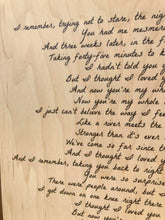 I remember, trying not to stare, the nig
You had me mesmeri
And three weeks later, in the f
Taking forty-five minutes to k
I hadn't told you y
But I thought I loved y
And now you're my whole
Now you're my whole
I just can't believe the way I feel
Like a river meets the
Stronger than it's ever
We've come so far since th
And I thought I loved
And I remember, taking you back to right w
You were so surpris
There were people around, but
I got down on one knee right there
I thought I loved
But now you'r